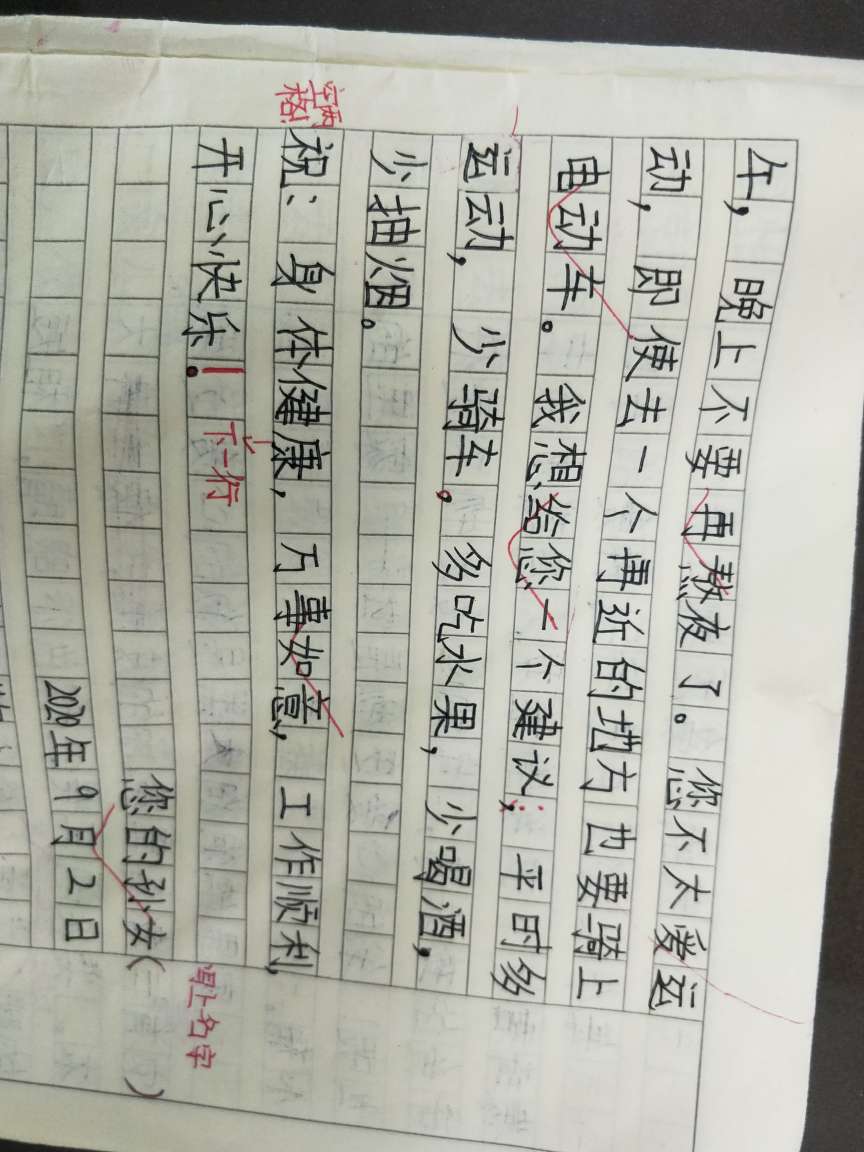 午，晚上不要再熬夜了。您不太爱运
动，即使去一个再近的地方也要骑上
电动车。我想给您一个建议：平时多
运动，少骑车。多吃水果，少喝酒，
少抽烟。
空两格
祝：身体健康，万事如意，工作顺利，
开心快乐！
下一行
您的孙女（
写上名字
2020年9月2日